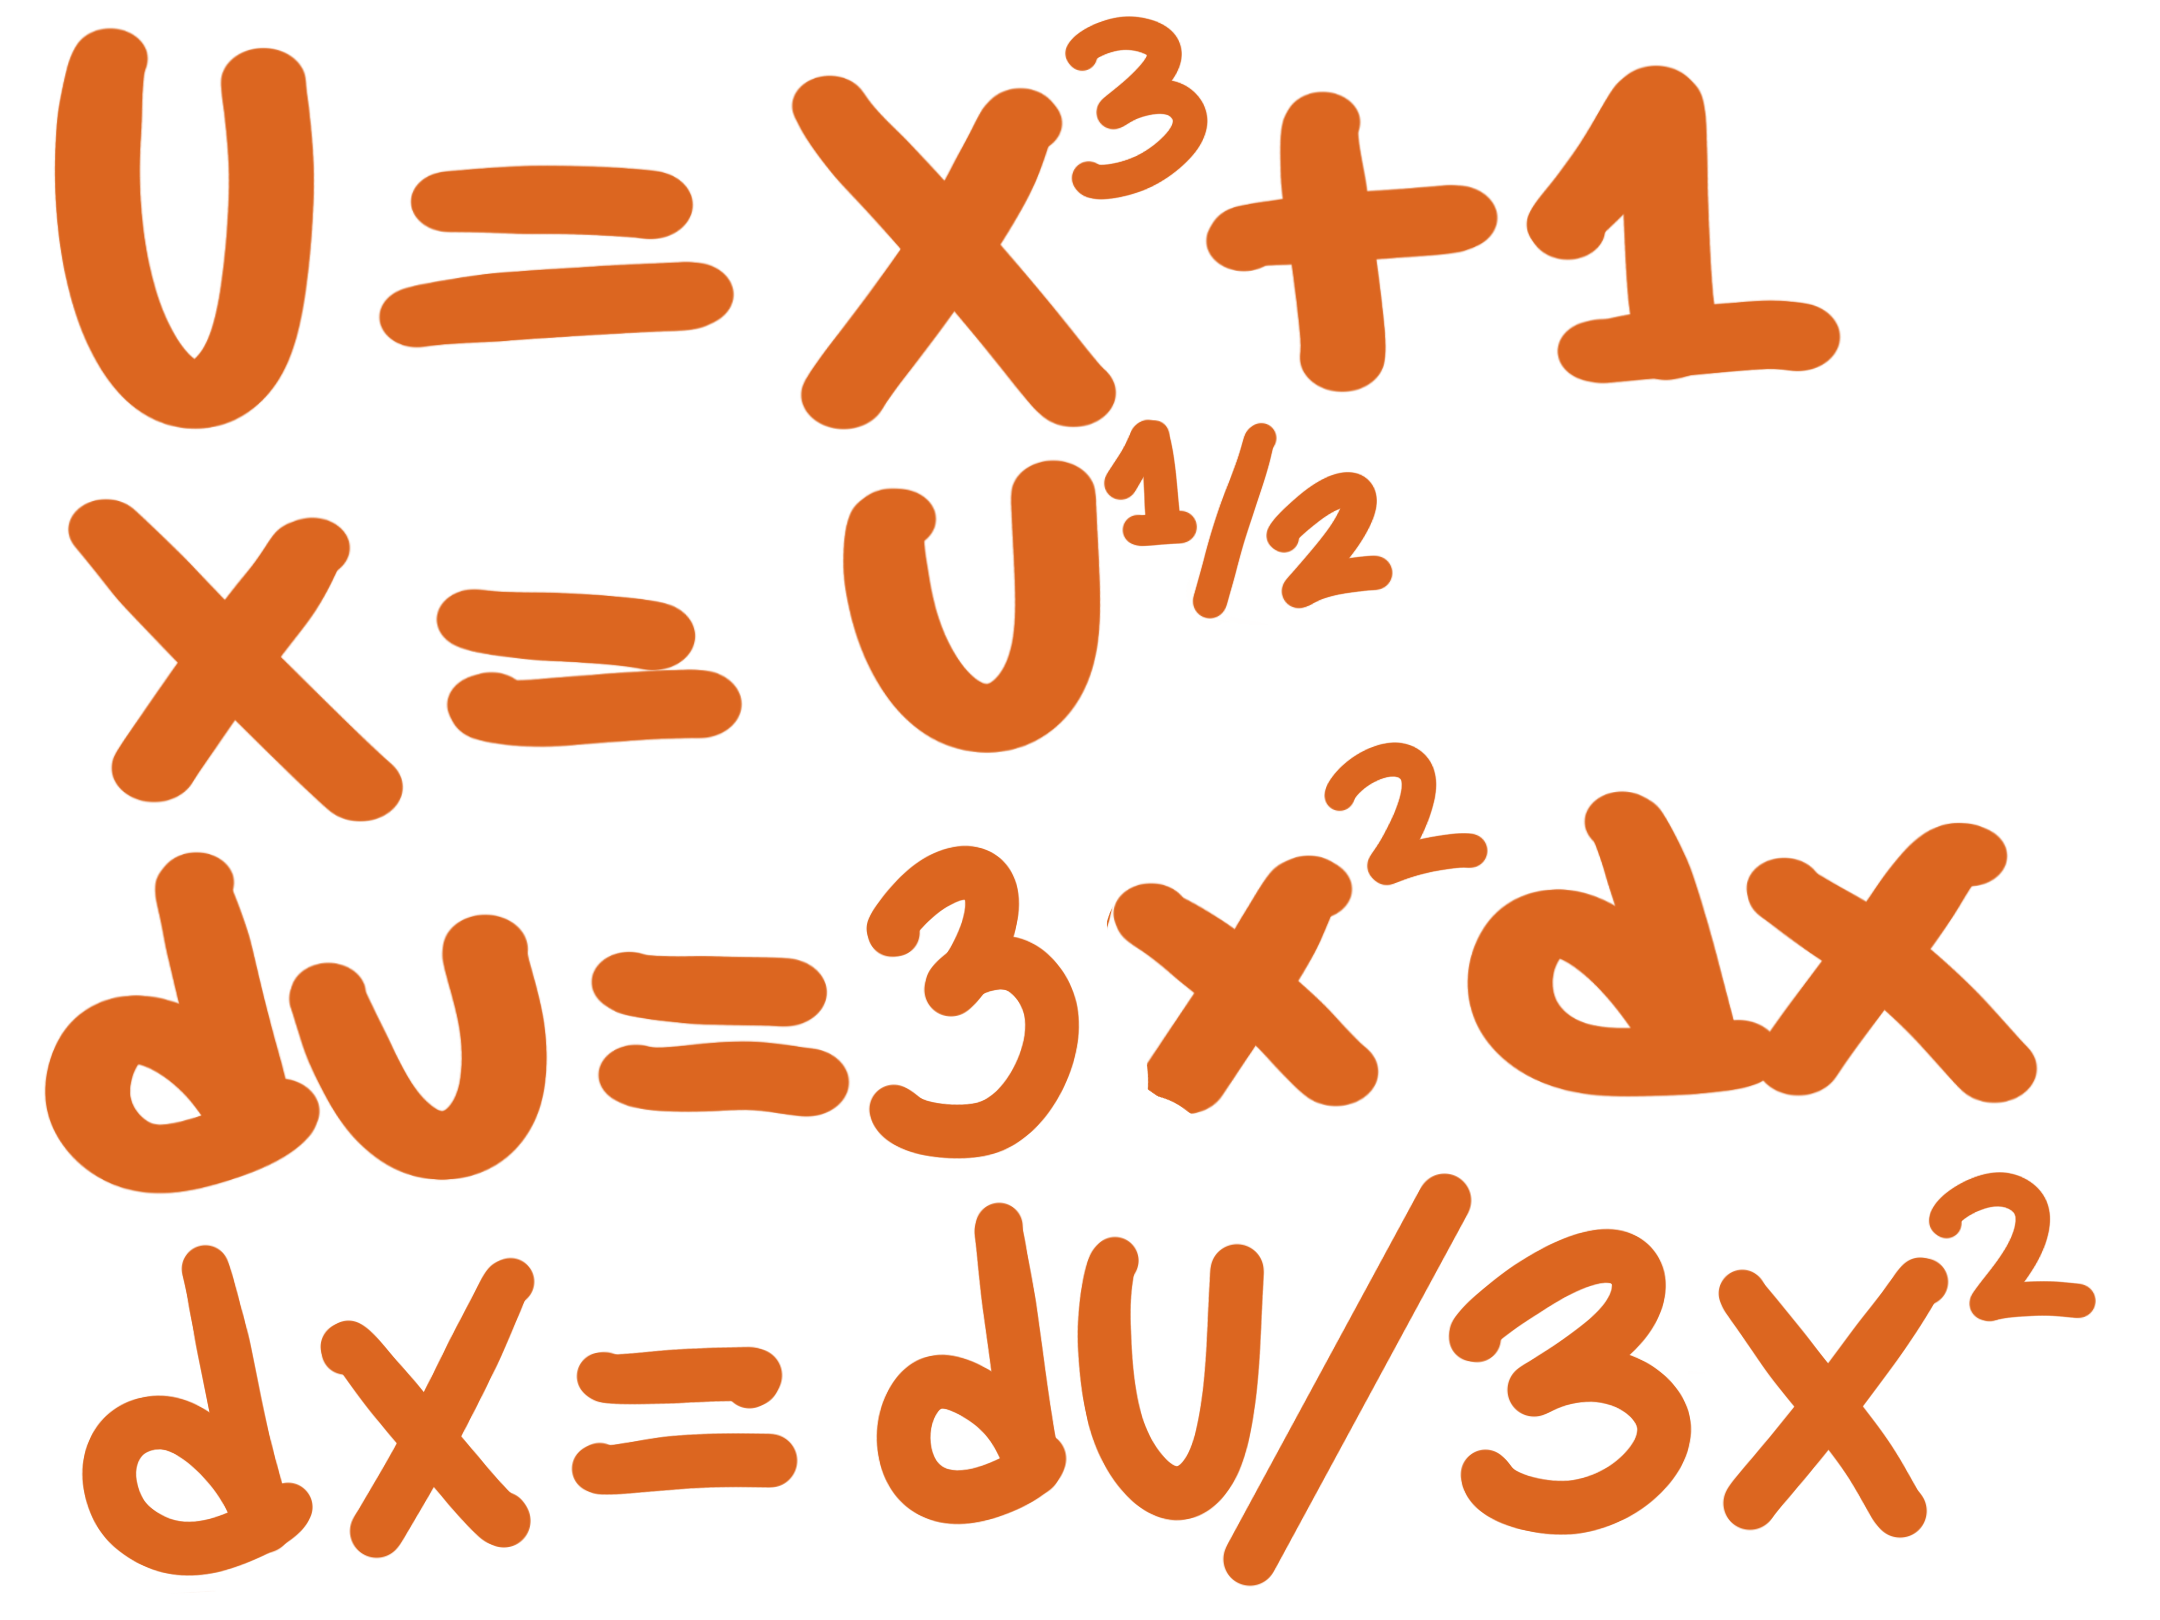 U = X³ + 1
X = U^1/2
du = 3x² dx
dx = du/3x²